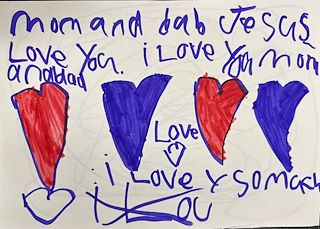 mom and bab Jesus
Love You. i Love You mom
anabdad
Love
i Love y somach
You